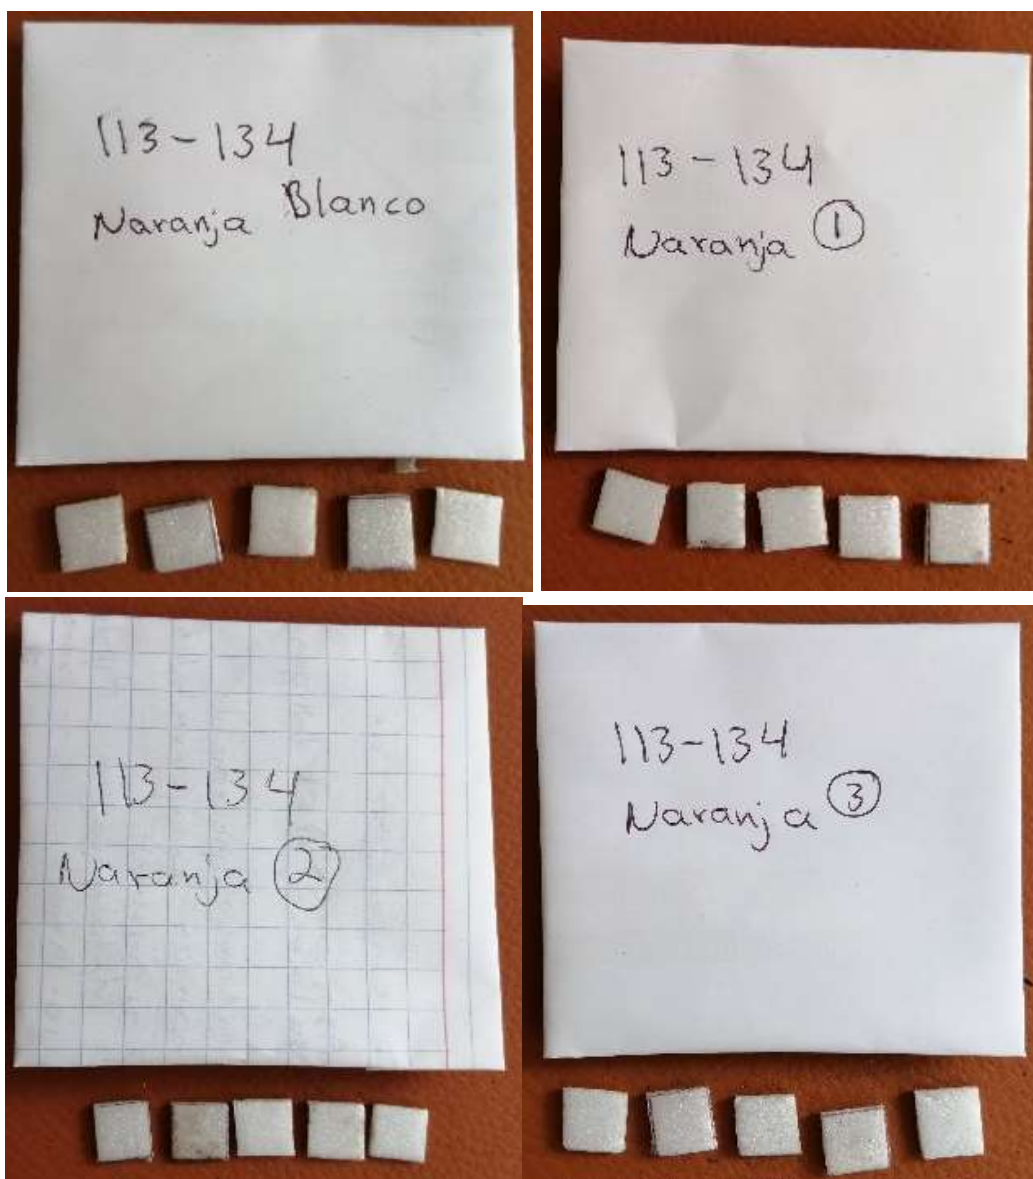 113-134
Naranja Blanco
113-134
Naranja 1
113-134
Naranja 2
113-134
Naranja 3